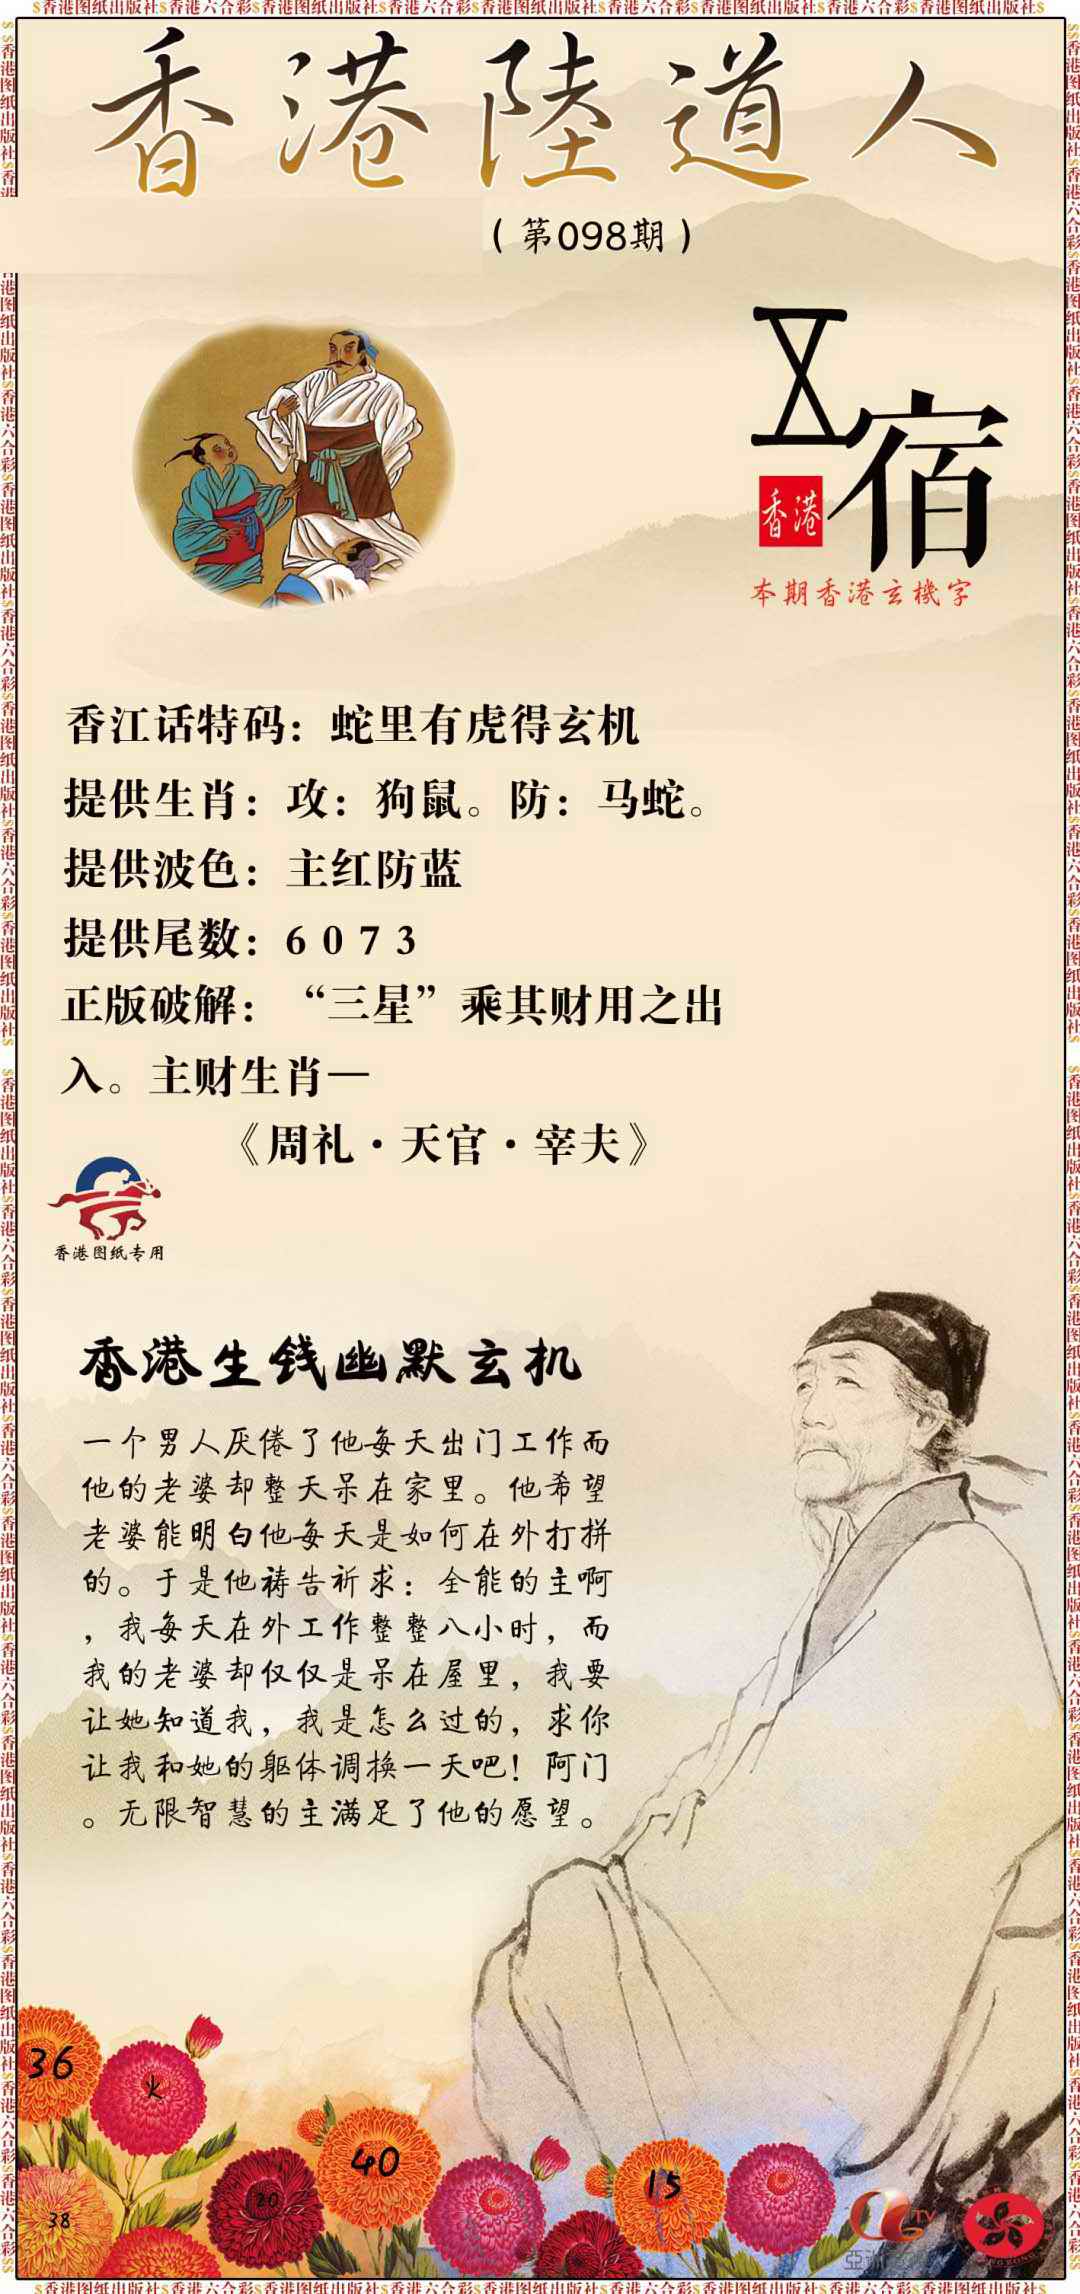 $香港图纸出版社$香港六合彩$香港图纸出版社$香港六合彩$香港图纸出版社$香港六合彩$香港图纸出版社$
香港陸道人
（第098期）
宿
香港
本期香港玄機字
香江话特码：蛇里有虎得玄机
提供生肖：攻：狗鼠。防：马蛇。
提供波色：主红防蓝
提供尾数：6 0 7 3
正版破解：“三星”乘其财用之出
入。主财生肖一
《周礼·天官·宰夫》
香港图纸专用
香港生钱幽默玄机
一个男人厌倦了他每天出门工作而
他的老婆却整天呆在家里。他希望
老婆能明白他每天是如何在外打拼
的。于是他祷告祈求：全能的主啊
，我每天在外工作整整八小时，而
我的老婆却仅仅是呆在屋里，我要
让她知道我，我是怎么过的，求你
让我和她的躯体调换一天吧！阿门
。无限智慧的主满足了他的愿望。
36
火
40
15
20
38
TV
$香港图纸出版社$香港六合彩$香港图纸出版社$香港六合彩$香港图纸出版社$香港六合彩$香港图纸出版社$